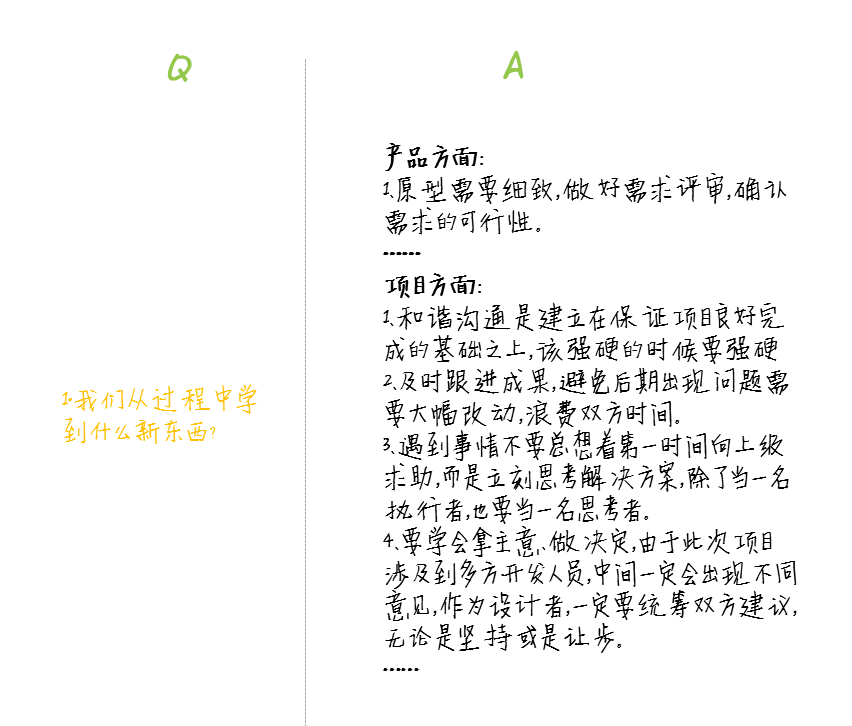 Q
A
产品方面:
1.原型需要细致,做好需求评审,确认
需求的可行性。
......
项目方面:
1.和谐沟通是建立在保证项目良好完
成的基础之上,该强硬的时候要强硬
2.及时跟进成果,避免后期出现问题需
要大幅改动,浪费双方时间。
3.遇到事情不要总想着第一时间向上级
求助,而是立刻思考解决方案,除了当一名
执行者,也要当一名思考者。
4.要学会拿主意、做决定,由于此次项目
涉及到多方开发人员,中间一定会出现不同
意见,作为设计者,一定要统筹双方建议,
无论是坚持或是让步。
......
1.我们从过程中学
到什么新东西?